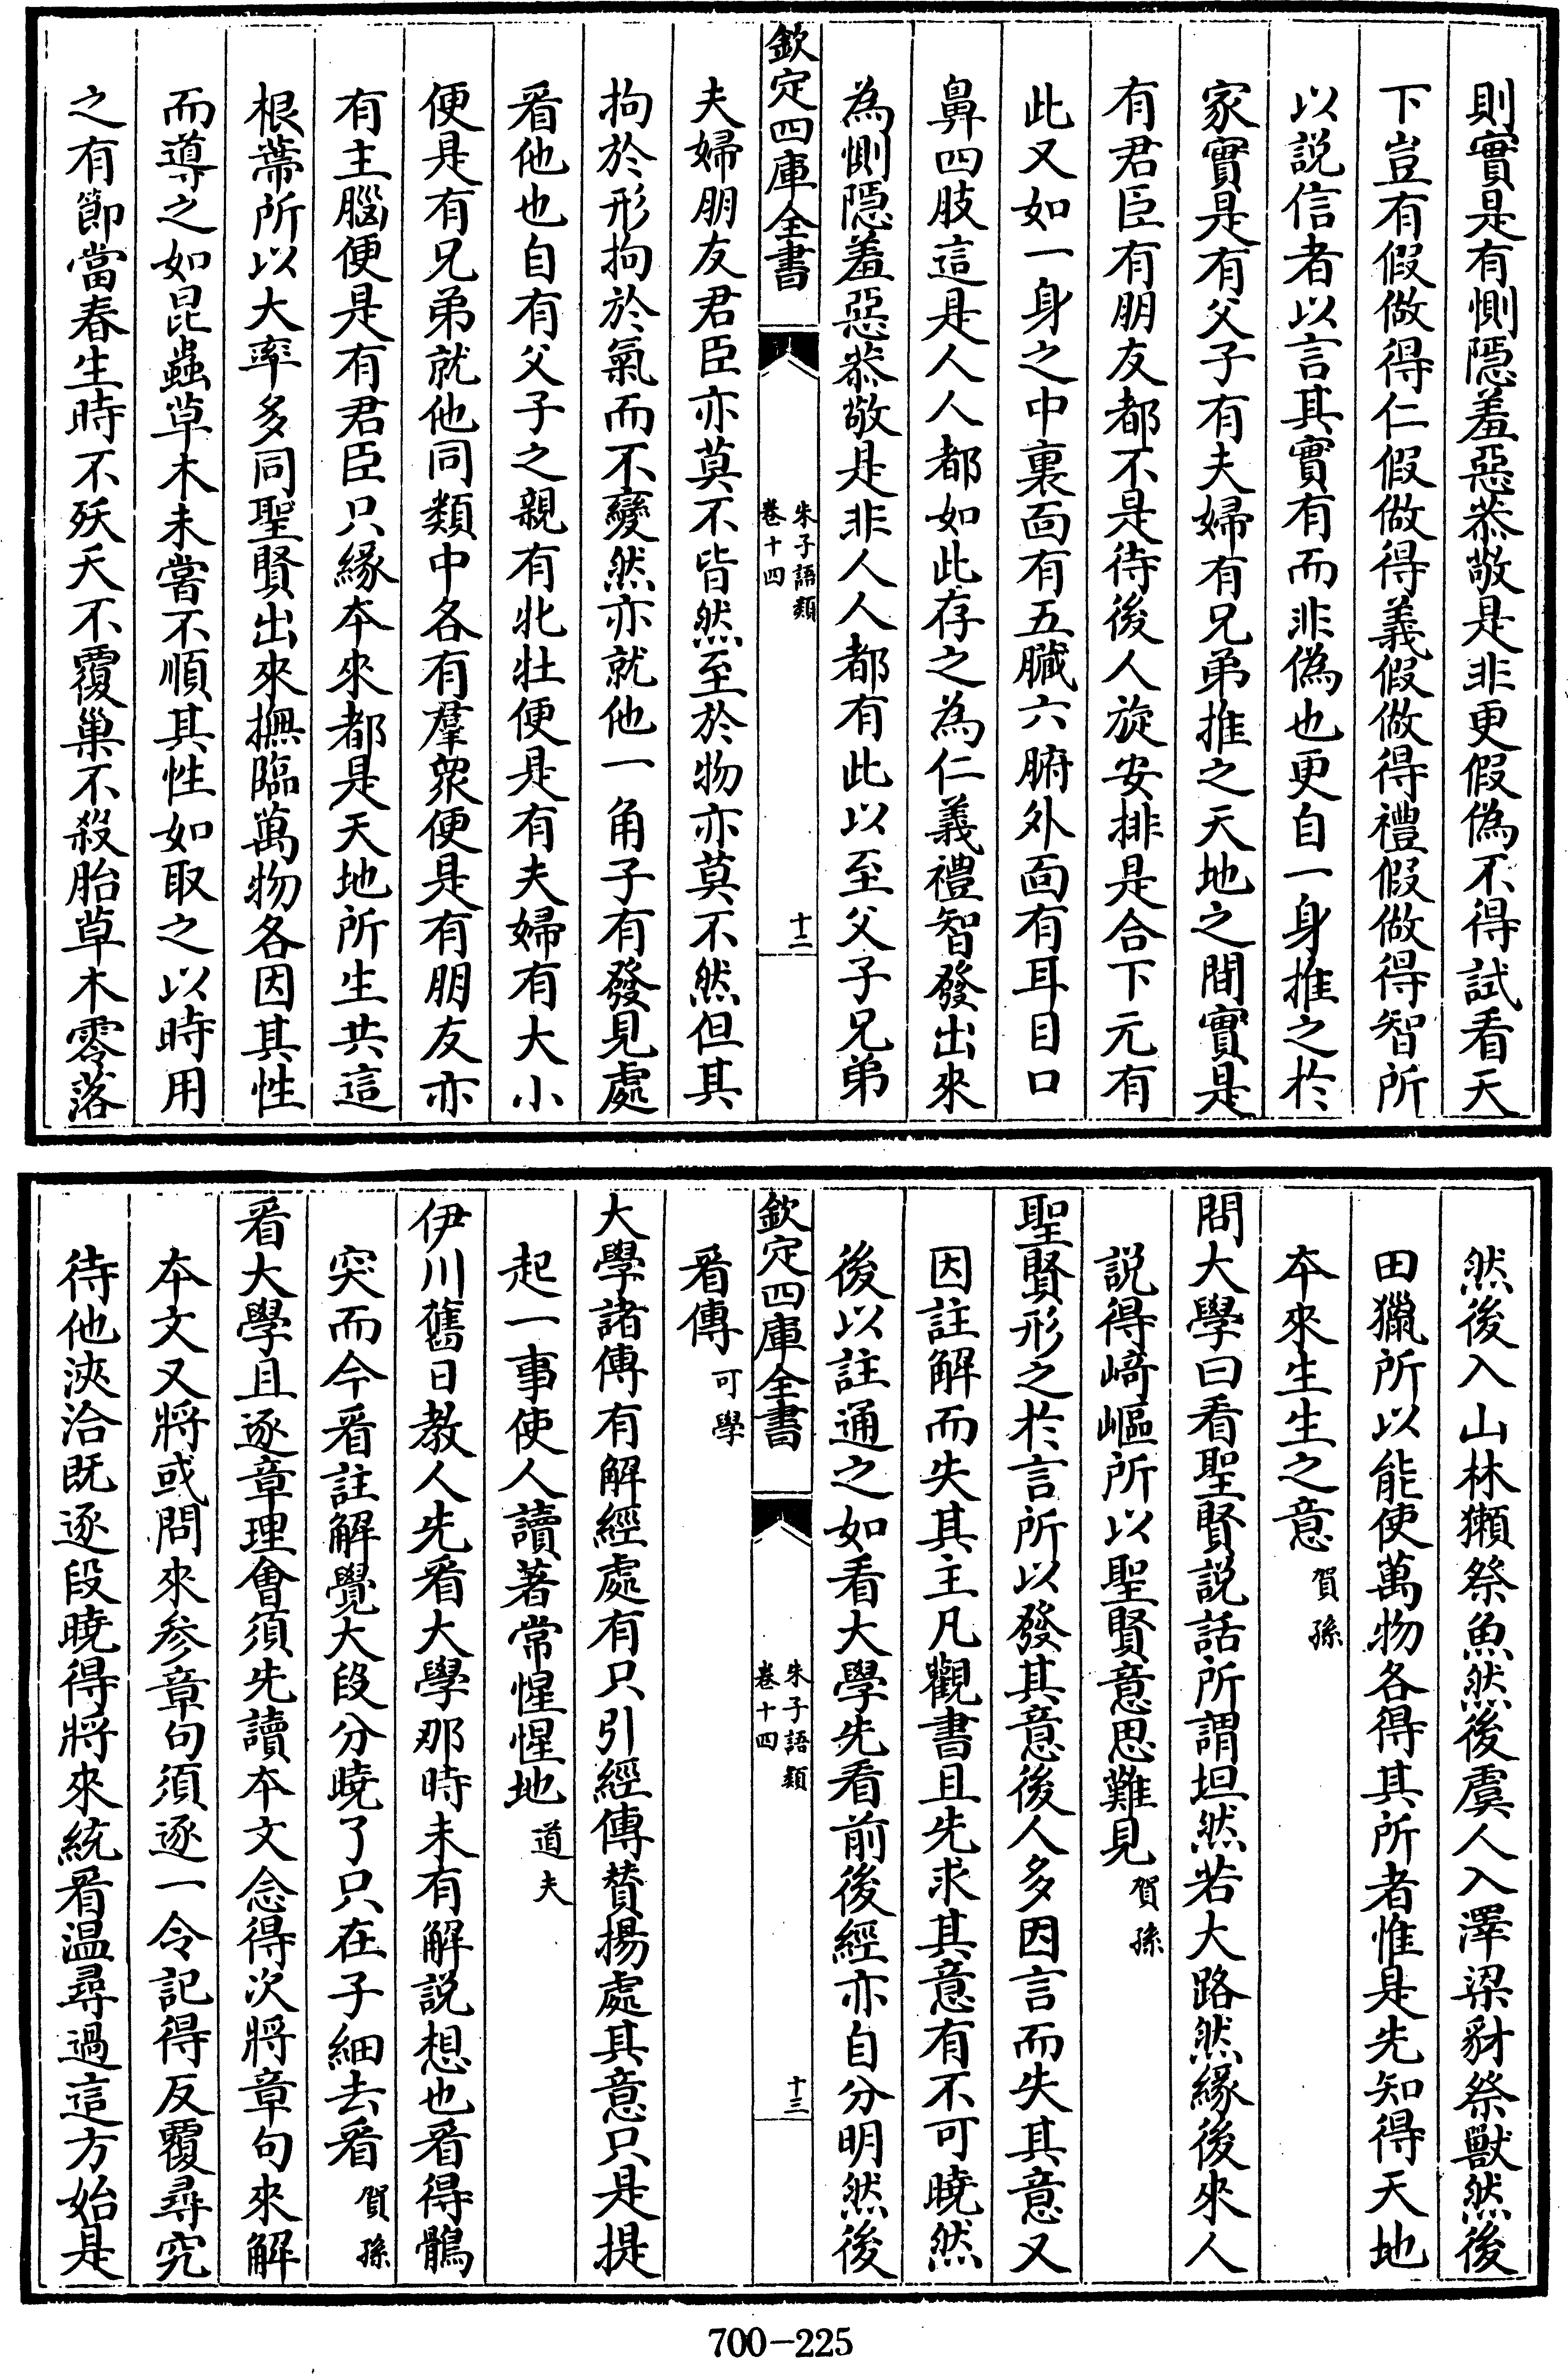 則實是有惻隠羞惡恭敬是非更假偽不得試看天
下豈有假做得仁假做得義假做得禮假做得智所
以説信者以言其實有而非偽也更自一身推之於
家實是有父子有夫婦有兄弟推之天地之間實是
有君臣有朋友都不是待後人旋安排是合下元有
此又如一身之中裏面有五臟六腑外面有耳目口
鼻四肢這是人人都如此存之為仁義禮智發出來
為惻隠羞惡恭敬是非人人都有此以至父子兄弟
欽定四庫全書
朱子語類
卷十四
十二
夫婦朋友君臣亦莫不皆然至於物亦莫不然但其
拘於形拘於氣而不變然亦就他一角子有發見處
看他也自有父子之親有牝牡便是有夫婦有大小
便是有兄弟就他同類中各有羣衆便是有朋友亦
有主腦便是有君臣只緣本來都是天地所生共這
根蔕所以大率多同聖賢出來撫臨萬物各因其性
而導之如昆蟲草木未嘗不順其性如取之以時用
之有節當春生時不殀夭不覆巢不殺胎草木零落
然後入山林獺祭魚然後虞人入澤梁豺祭獸然後
田獵所以能使萬物各得其所者惟是先知得天地
本來生生之意賀孫
問大學曰看聖賢説話所謂坦然若大路然緣後來人
説得﨑嶇所以聖賢意思難見賀孫
聖賢形之於言所以發其意後人多因言而失其意又
因註解而失其主凡觀書且先求其意有不可曉然
後以註通之如看大學先看前後經亦自分明然後
欽定四庫全書
朱子語類
卷十四
十三
看傳可學
大學諸傳有解經處有只引經傳賛揚處其意只是提
起一事使人讀著常惺惺地道夫
伊川舊日教人先看大學那時未有解説想也看得鶻
突而今看註解覺大段分曉了只在子細去看賀孫
看大學且逐章理會須先讀本文念得次將章句來解
本文又將或問來參章句須逐一令記得反覆尋究
待他浹洽既逐段曉得將來統看温尋過這方始是
700-225